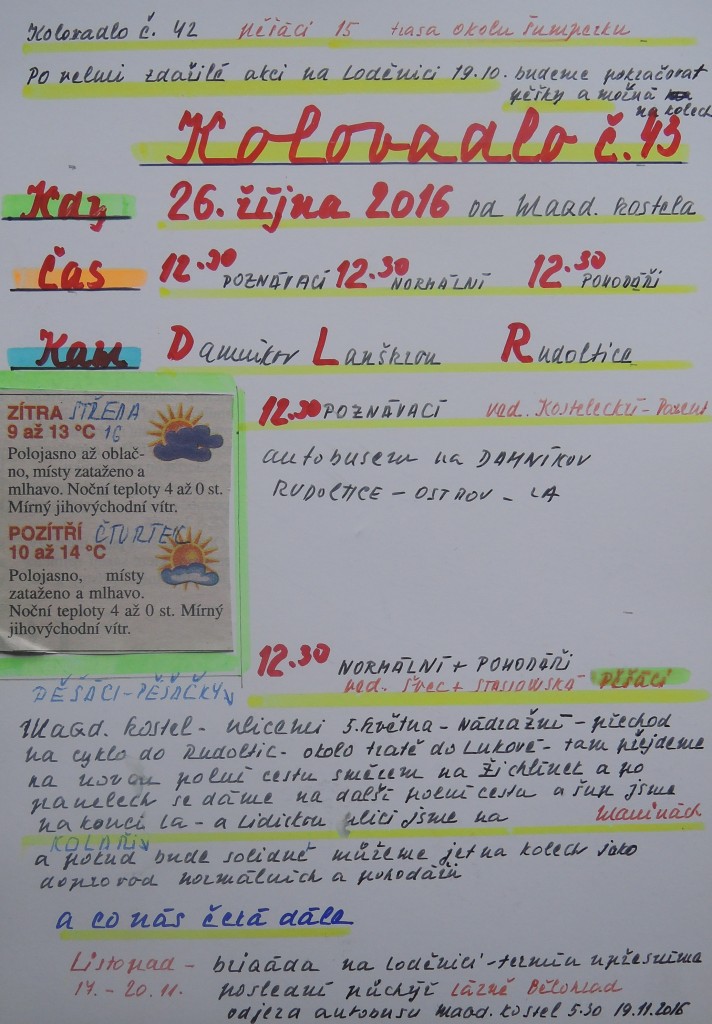 Kolovadlo č. 42 pěšáci 15 trasa okolu Šumperku
Po velmi zdařilé akci na Loděnici 19.10. budeme pokračovat
pěšky a možná
na kolech
Kolovadlo č. 43
Kdy 26. října 2016 od Magd. kostela
Čas 12.30 POZNÁVACÍ 12.30 NORMÁLNÍ 12.30 POHODÁŘI
Kam Damníkov Lanškroun Rudoltice
ZÍTRA STŘEDA
9 až 13 °C
Polojasno až oblač-
no, místy zataženo a
mlhavo. Noční teploty 4 až 0 st.
Mírný jihovýchodní vítr.
POZÍTŘÍ ČTVRTEK
10 až 14 °C
Polojasno, místy
zataženo a mlhavo.
Noční teploty 4 až 0 st. Mírný
jihovýchodní vítr.
12.30 POZNÁVACÍ ved. Kostelecký -
autobusem na DAMNÍKOV
RUDOLTICE - OSTROV - LA
12.30 NORMÁLNÍ + POHODÁŘI
ved. ŠVEC + STASIOWSKÁ PĚŠÁCI
PĚŠÁCI - PĚŠAČKY
Magd. kostel - ulicemi 5. května - Nádražní - přechod
na cyklo do Rudoltic - okolo tratě do Lukové - tam přejdeme
na novou polní cestu směrem na Žichlínek a po
panelech se dáme na další polní cestu a šup jsme
na konci La - a Lidickou ulicí jsme na Mlaninách
KOLAŘI
a pokud bude solidně můžeme jet na kolech jako
doprovod normálních a pohodářů
a co nás čeká dále
Listopad - brigáda na Loděnici - termín upřesníme
17. - 20. 11. poslední puchýř Lázně Bělohrad
odjezd autobusu Magd. kostel 5.30 19.11.2016